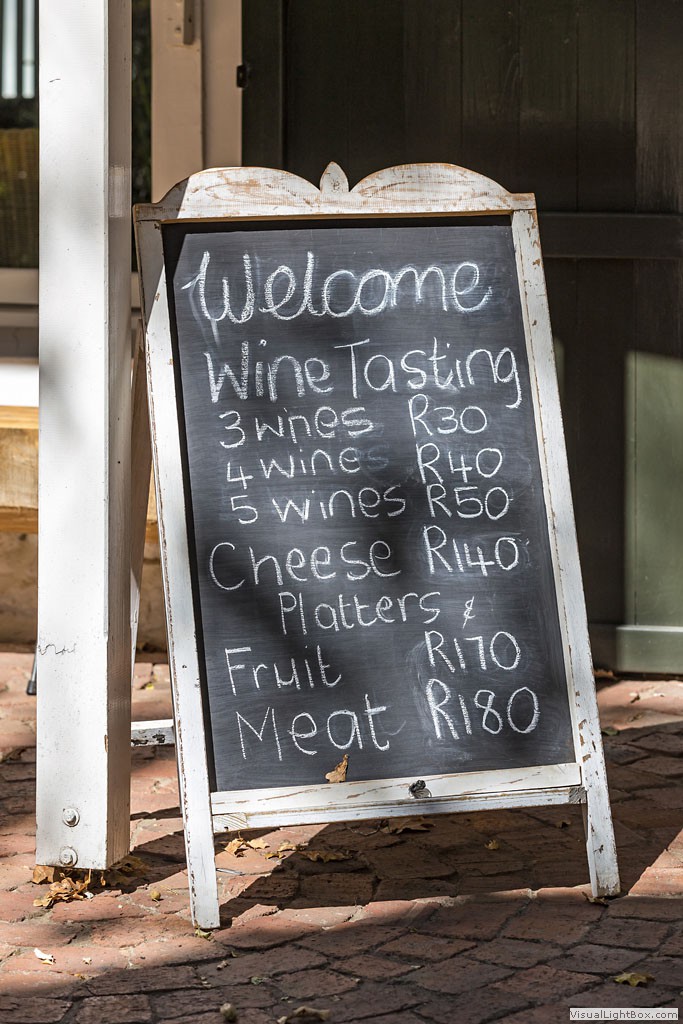 Welcome
Wine Tasting
3 wines R30
4 wines R40
5 wines R50
Cheese R140
Platters &
Fruit R170
Meat R180
VisualLightBox.com